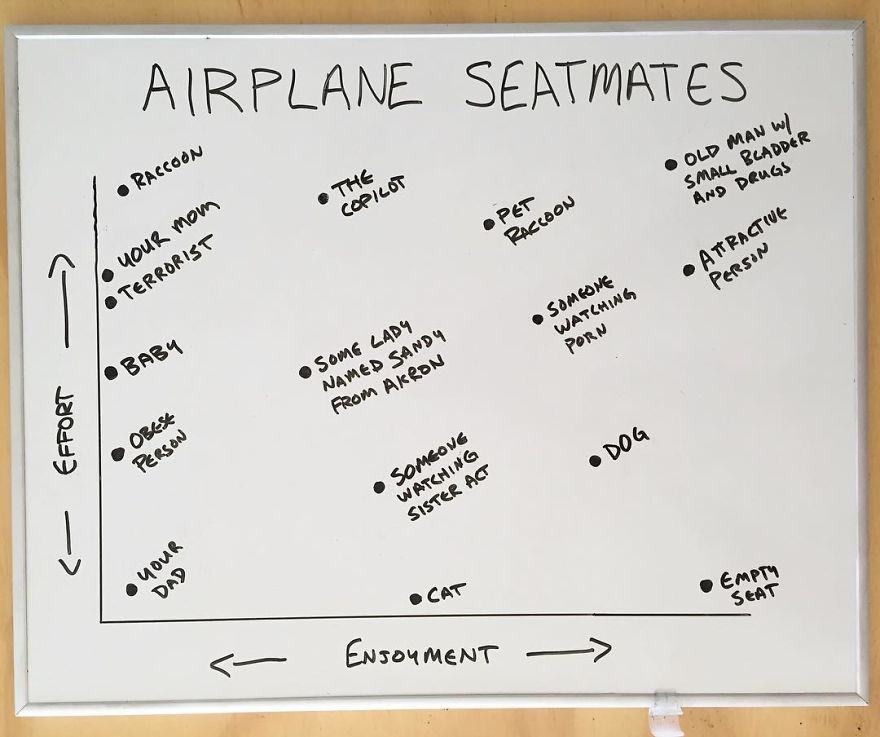 AIRPLANE SEATMATES
RACCOON
THE
COPILOT
OLD MAN W/
SMALL BLADDER
AND DRUGS
PET
RACCOON
YOUR MOM
TERRORIST
ATTRACTIVE
PERSON
SOMEONE
WATCHING
PORN
BABY
SOME LADY
NAMED SANDY
FROM AKRON
OBESE
PERSON
SOMEONE
WATCHING
SISTER ACT
DOG
YOUR
DAD
CAT
EMPTY
SEAT
EFFORT
ENJOYMENT